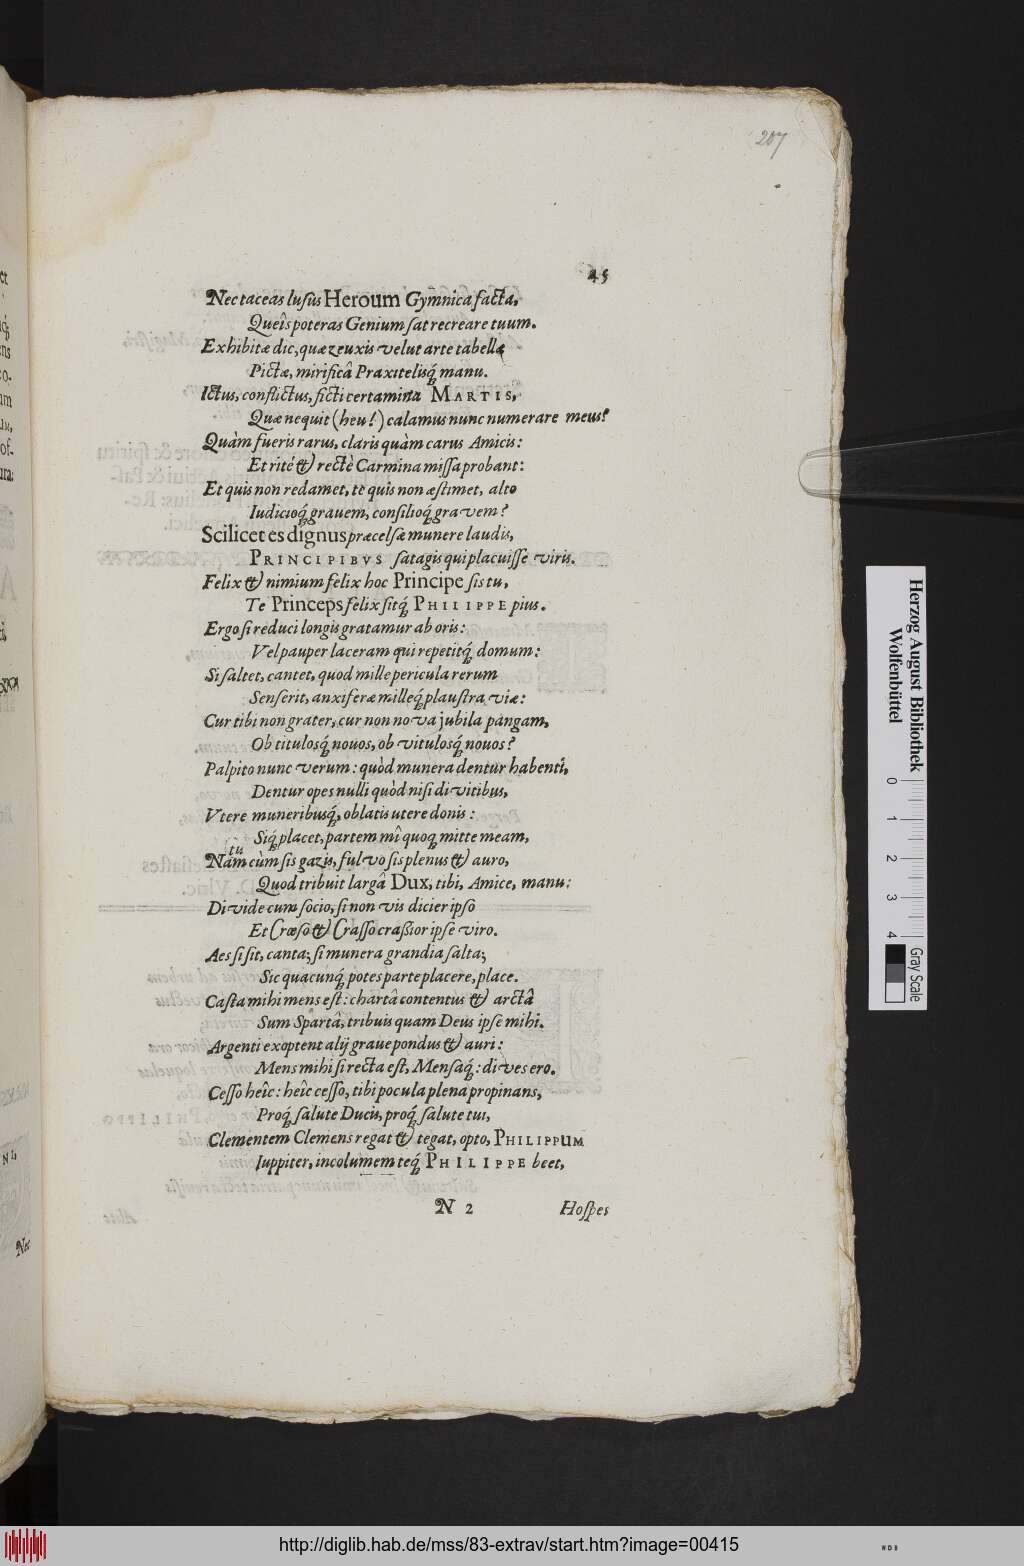 207
45
Nec taceas lusus Heroum Gymnica facta,
Queîs poteras Genium sat recreare tuum.
Exhibitæ dic, quæ zeuxis velut arte tabellæ
Pictæ, mirificâ Praxitelisq́ manu.
Ictus, conflictus, ficti certamina MARTIS,
Quæ nequit (heu!) calamus nunc numerare meus!
Quàm fueris rarus, claris quàm carus Amicis:
Et rité & rectè Carmina missa probant:
Et quis non redamet, te quis non æstimet, alto
Iudicioq́ grauem, consilioq́ gravem?
Scilicet es dignus præcelsæ munere laudis,
PRINCIPIBVS satagis qui placuisse viris.
Felix & nimium felix hoc Principe sis tu,
Te Princeps felix sitq́ PHILIPPE pius.
Ergo si reduci longis gratamur ab oris:
Vel pauper laceram qui repetitq́ domum:
Si saltet, cantet, quod mille pericula rerum
Senserit, anxiferæ milleq́ plaustra viæ:
Cur tibi non grater, cur non nova jubila pangam,
Ob titulosq́ nouos, ob vitulosq́ nouos?
Palpito nunc verum: quòd munera dentur habenti,
Dentur opes nulli quòd nisi divitibus,
Vtere muneribusq́, oblatis utere donis:
Siq́ placet, partem mî quoq́ mitte meam,
tu
Nam cùm sis gazis, fulvo sis plenus & auro,
Quod tribuit largâ Dux, tibi, Amice, manu:
Divide cum socio, si non vis dicier ipso
Et Crœso & Crasso crassior ipse viro.
Aes si sit, canta; si munera grandia salta;
Sic quacunq́ potes parte placere, place.
Casta mihi mens est: chartâ contentus & arctâ
Sum Spartâ, tribuis quam Deus ipse mihi.
Argenti exoptent alij graue pondus & auri:
Mens mihi si recta est, Mensaq́: dives ero.
Cesso heîc: heîc cesso, tibi pocula plena propinans,
Proq́ salute Ducis, proq́ salute tui,
Clementem Clemens regat & tegat, opto, PHILIPPUM
Iuppiter, incolumem teq́ PHILIPPE beet,
N 2
Hospes
Herzog August Bibliothek
Wolfenbüttel
0 1 2 3 4
Gray Scale
http://diglib.hab.de/mss/83-extrav/start.htm?image=00415